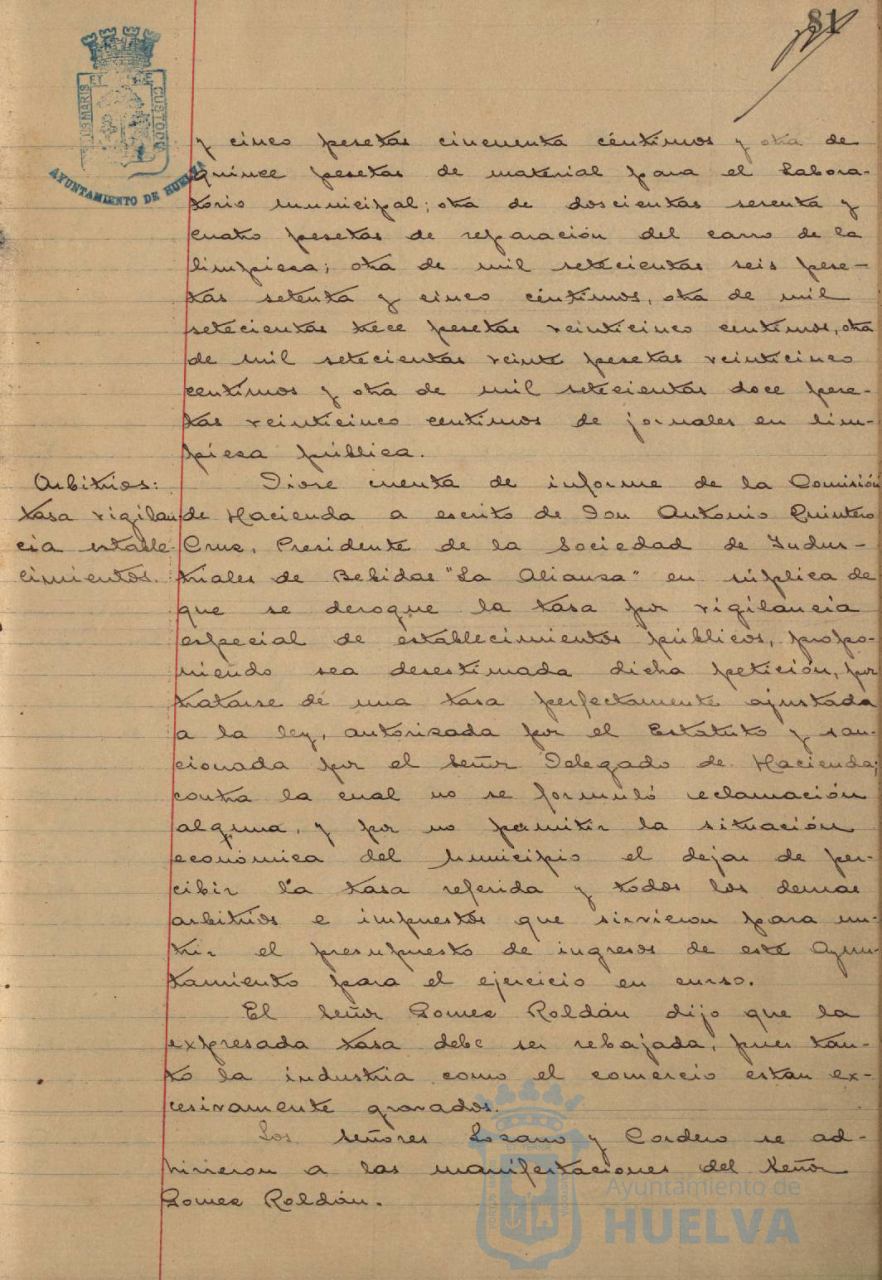 81
PORTUS MARIS ET TERRAE CUSTODIA
AYUNTAMIENTO DE HUELVA
y cinco pesetas cincuenta céntimos y otra de
quince pesetas de material para el Labora-
torio municipal; otra de doscientas sesenta y
cuatro pesetas de reparación del carro de la
limpieza; otra de mil setecientas seis pese-
tas setenta y cinco céntimos, otra de mil
setecientas trece pesetas veinticinco centimos, otra
de mil setecientas veinte pesetas veinticinco
centimos y otra de mil setecientas doce pese-
tas veinticinco centimos de jornales en lim-
pieza pública.
Arbitrios:
tasa vigilan-
cia estable-
cimientos.
Diose cuenta de informe de la Comisión
de Hacienda a escrito de Don Antonio Quintero
Cruz, Presidente de la Sociedad de Indus-
triales de Bebidas "La Alianza" en súplica de
que se derogue la tasa por vigilancia
especial de establecimientos públicos, propo-
niendo sea desestimada dicha petición, por
tratarse de una tasa perfectamente ajustada
a la ley, autorizada por el Estatuto y san-
cionada por el Señor Delegado de Hacienda;
contra la cual no se formuló reclamación
alguna, y por no permitir la situación
económica del Municipio el dejar de per-
cibir la tasa referida y todos los demas
arbitrios e impuestos que sirvieron para nu-
trir el presupuesto de ingresos de este Ayun-
tamiento para el ejercicio en curso.
El Señor Gomez Roldán dijo que la
expresada tasa debe ser rebajada, pues tan-
to la industria como el comercio estan ex-
cesivamente gravados.
Los Señores Lozano y Cordero se ad-
hirieron a las manifestaciones del Señor
Gomez Roldán.
Ayuntamiento de
HUELVA